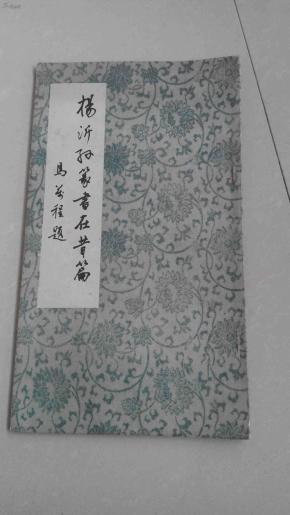 楊沂孫篆書在昔篇
馬萬程題